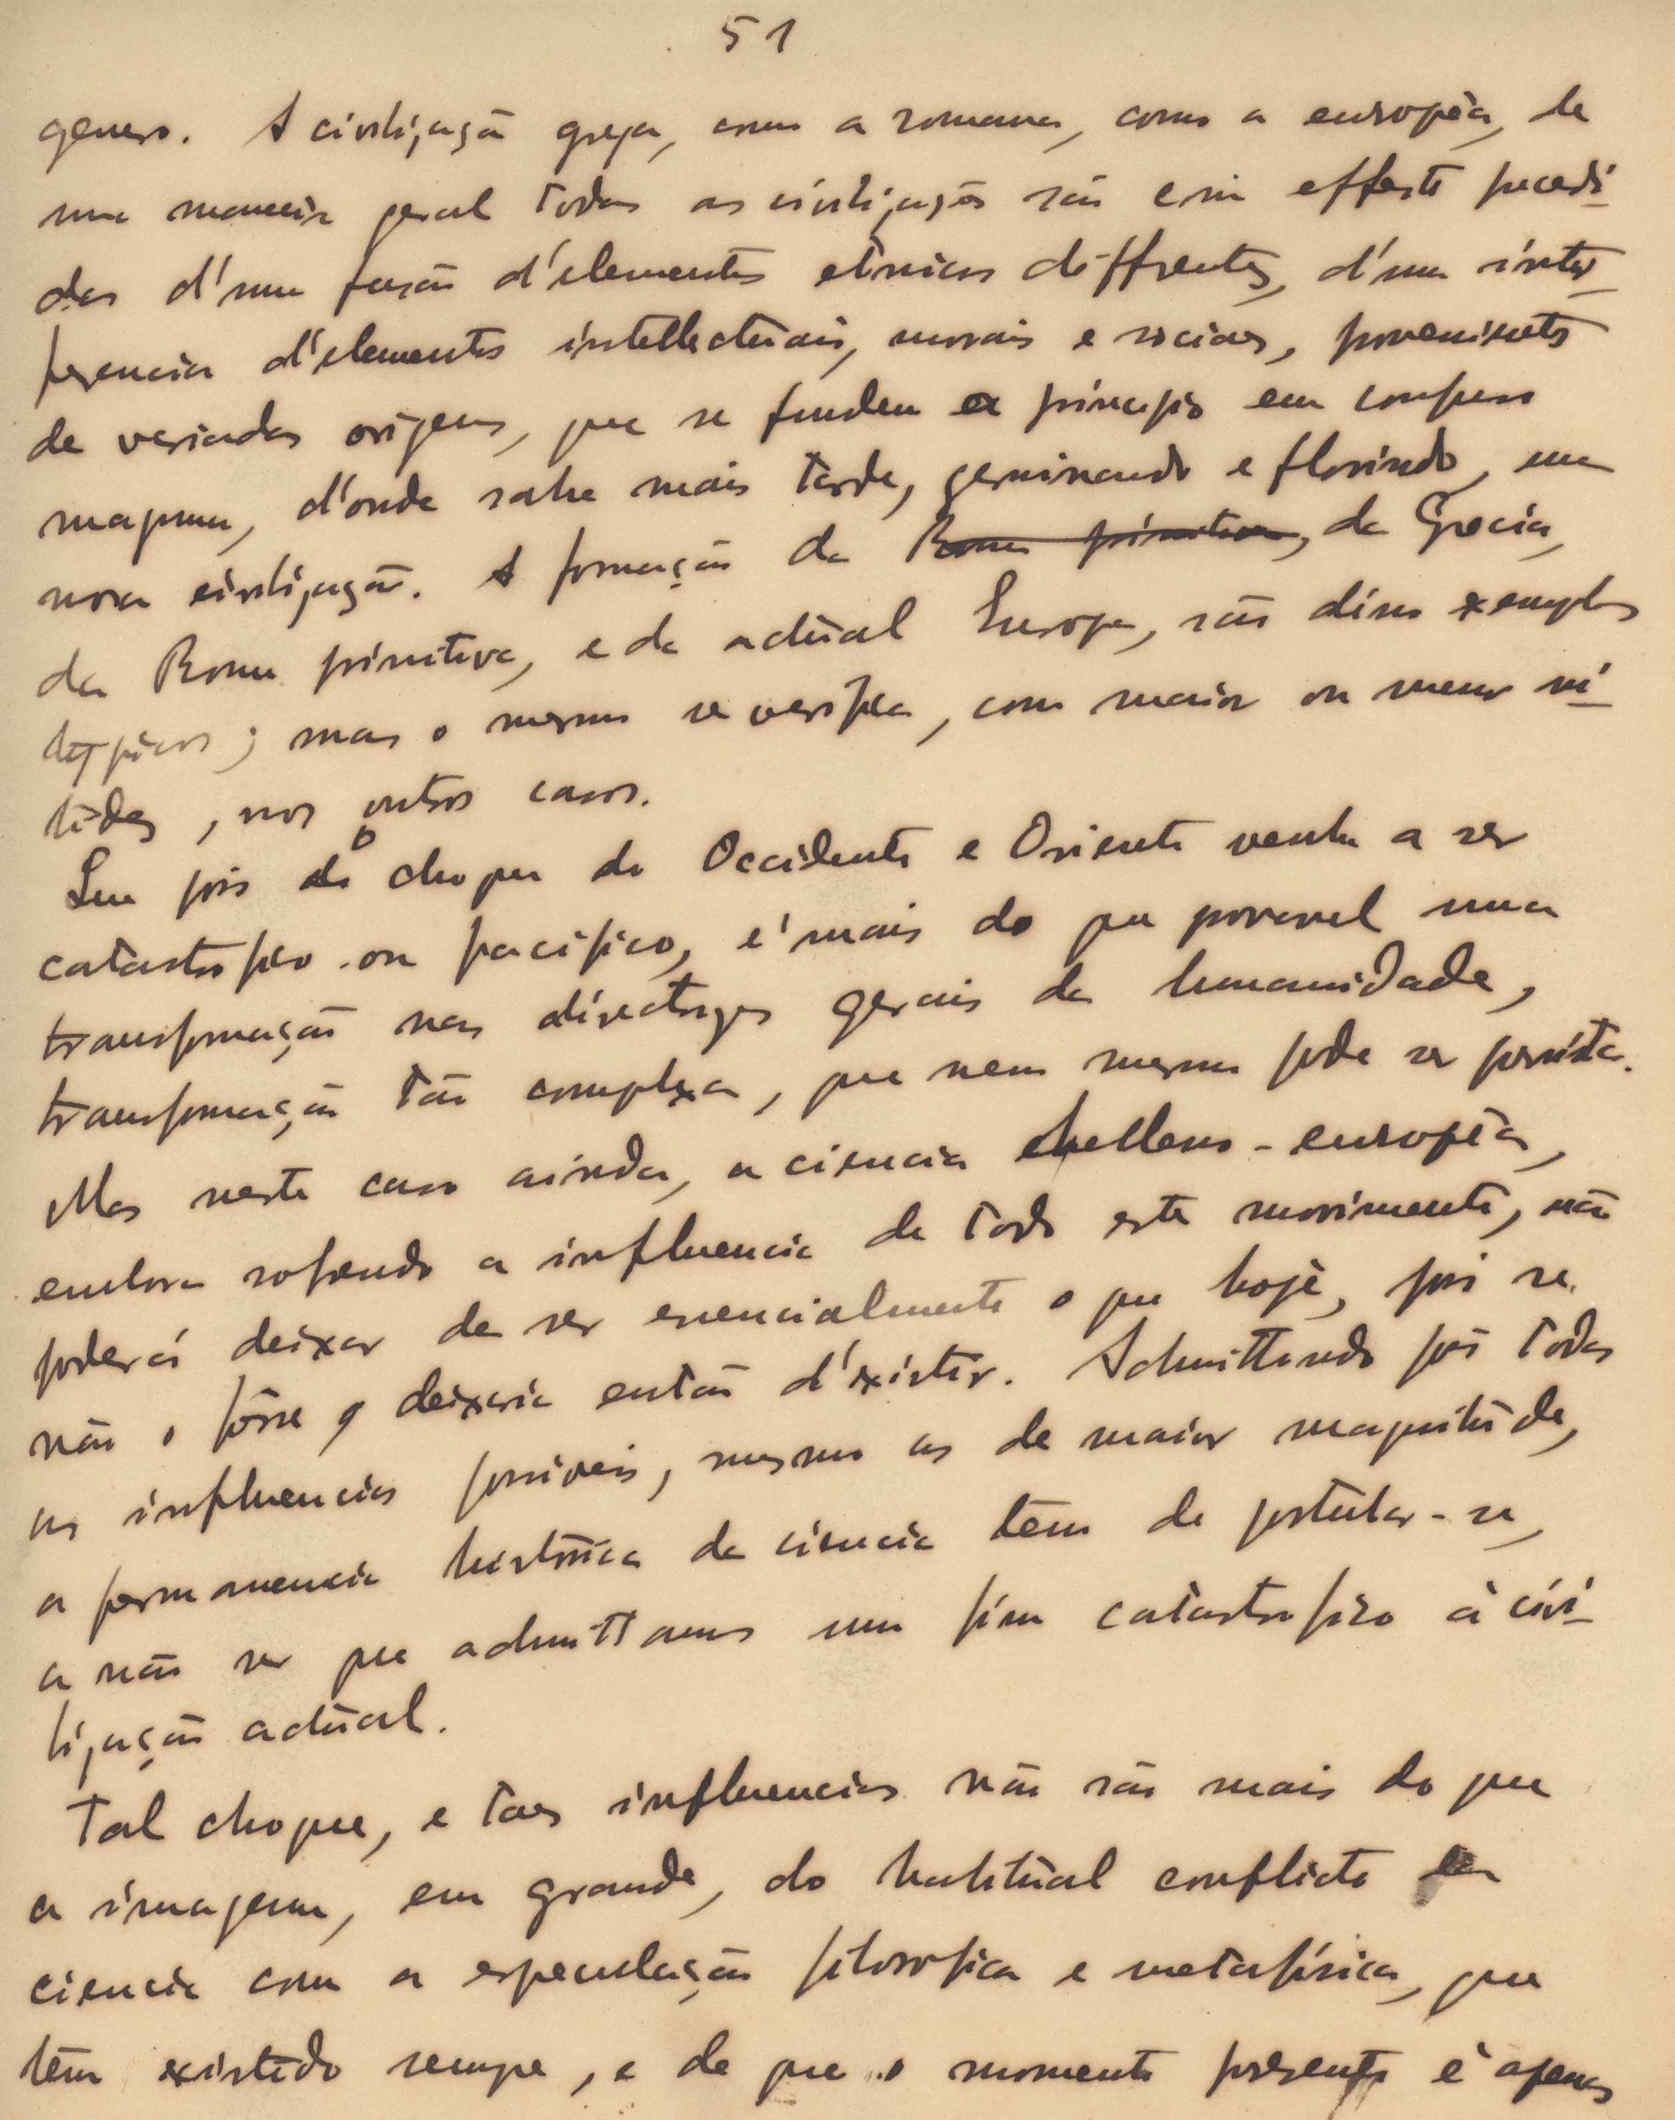 51
genero. A civilização grega, como a romana, como a europêa, de
uma maneira geral todas as civilizações são com effeito precedi-
das d'uma fusão d'elementos etnicos differentes, d'uma inter-
ferencia d'elementos intellectuais, morais e sociaes, provenientes
de variadas origens, que se fundem a principio em confuso
magma, d'onde sahe mais tarde, germinando e florindo, uma
nova civilização. A formação da Roma primitiva, da Grecia,
da Roma primitiva, e da actual Europa, são disso exemplos
typicos; mas o mesmo se verifica, com maior ou menor ni-
tidez, nos outros casos.
Seu pois o choque do Occidente e Oriente venha a ser
catastrofico ou pacifico, é mais do que provavel uma
transformação nas directrizes gerais da humanidade,
transformação tão complexa, que nem mesmo pode ser prevista.
Mas neste caso ainda, a ciencia helleno-europêa,
embora sofrendo a influencia de todo este movimento, não
poderá deixar de ser essencialmente o que hoje, pois se
não o fôsse deixaria então d'existir. Admittindo pois todas
as influencias possiveis, mesmo as de maior magnitude,
a permanencia historica da ciencia tem de postular-se,
a não ser que admittamos um fim catastrofico à civi-
lização actual.
Tal choque, e taes influencias não são mais do que
a imagem, em grande, do habitual conflicto da
ciencia com a especulação filosofica e metafísica, que
tem existido sempre, e de que o momento presente é apenas